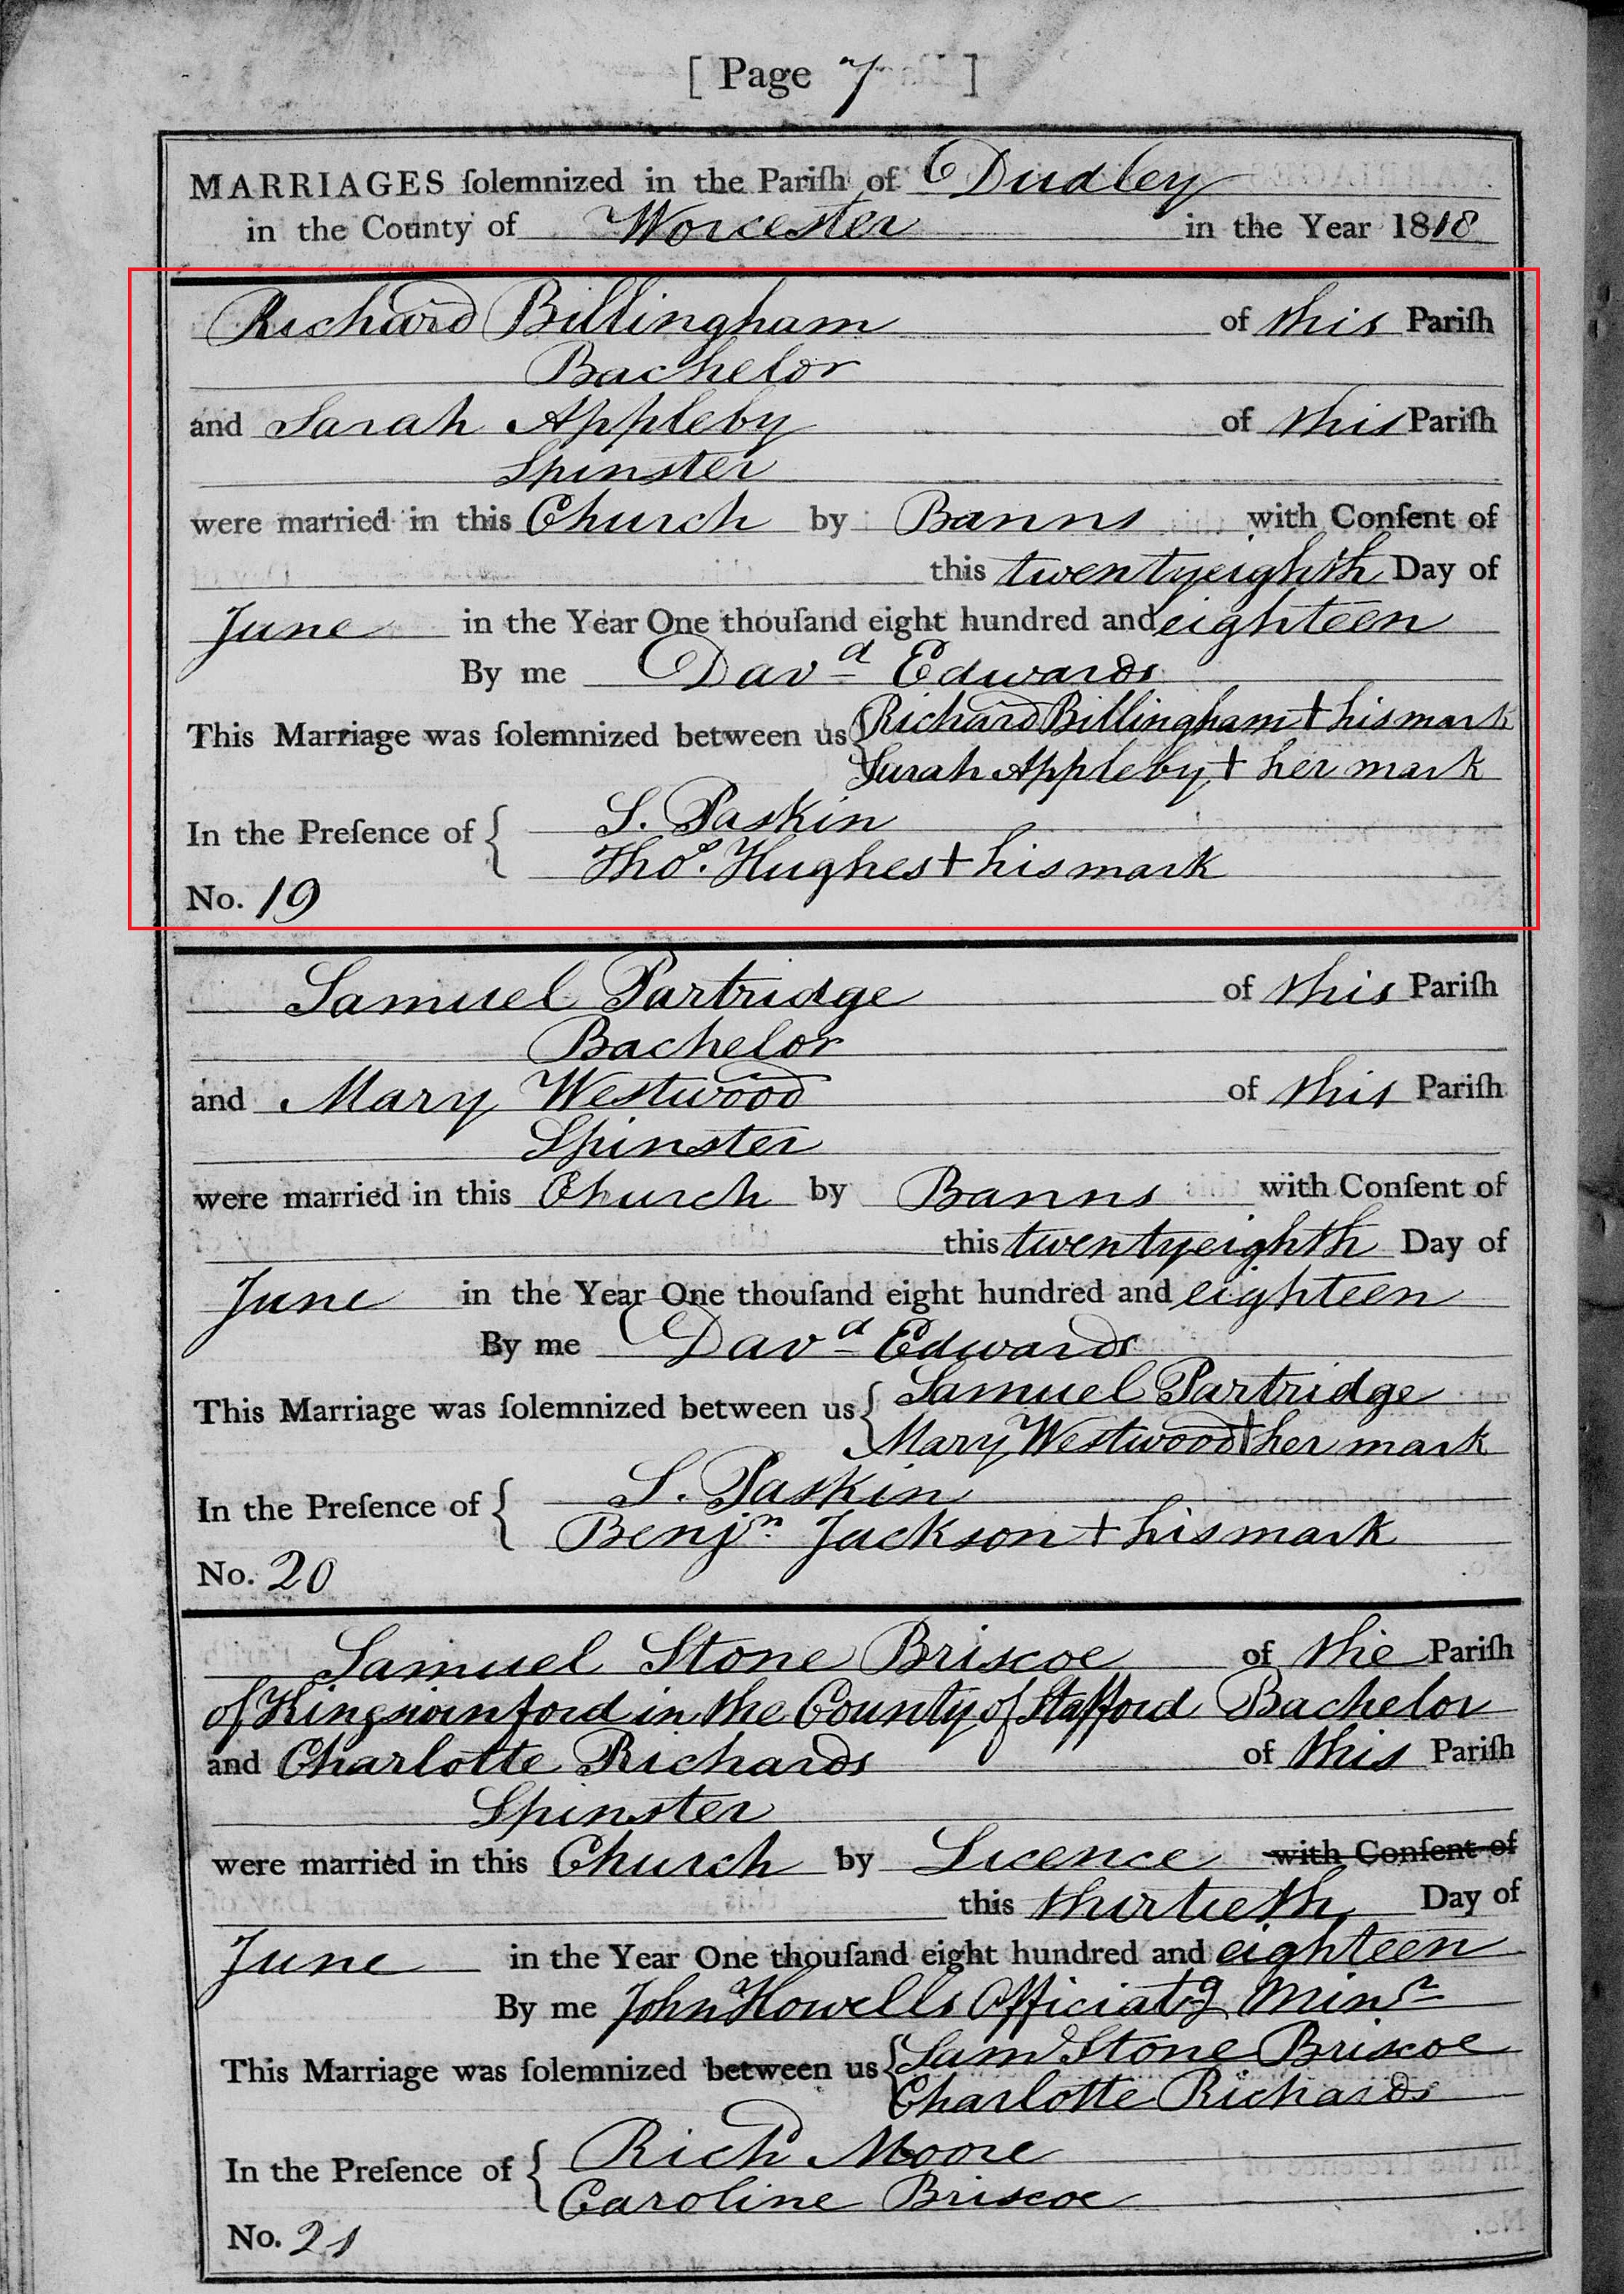 [ Page 7 ]
MARRIAGES ſolemnized in the Pariſh of Dudley
in the County of Worcester in the Year 1818
Richard Billingham of this Pariſh
Bachelor
and Sarah Appleby of this Pariſh
Spinster
were married in this Church by Banns with Conſent of
this twentyeighth Day of
June in the Year One thouſand eight hundred and eighteen
By me Davd Edwards
This Marriage was ſolemnized between us { Richard Billingham + his mark
Sarah Appleby + her mark
In the Preſence of { S. Paskin
Thos. Hughes + his mark
No. 19
Samuel Partridge of this Pariſh
Bachelor
and Mary Westwood of this Pariſh
Spinster
were married in this Church by Banns with Conſent of
this twentyeighth Day of
June in the Year One thouſand eight hundred and eighteen
By me Davd Edwards
This Marriage was ſolemnized between us { Samuel Partridge
Mary Westwood + her mark
In the Preſence of { S. Paskin
Benjn Jackson + his mark
No. 20
Samuel Stone Briscoe of the Pariſh
of Kingswinford in the County of Stafford Bachelor
and Charlotte Richards of this Pariſh
Spinster
were married in this Church by Licence with Conſent of
this thirtieth Day of
June in the Year One thouſand eight hundred and eighteen
By me John Howells Officiatg Minr
This Marriage was ſolemnized between us { Saml Stone Briscoe
Charlotte Richards
In the Preſence of { Richd Moore
Caroline Briscoe
No. 21